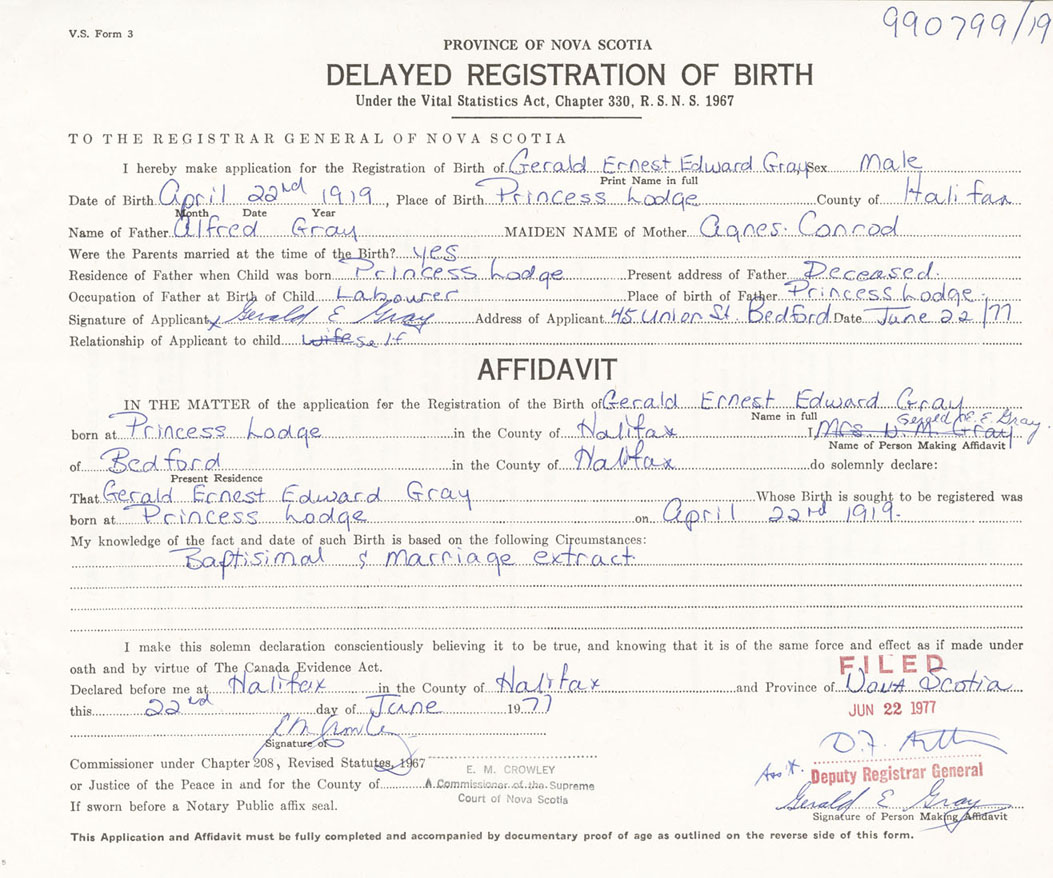 V.S. Form 3
990799/19
PROVINCE OF NOVA SCOTIA
DELAYED REGISTRATION OF BIRTH
Under the Vital Statistics Act, Chapter 330, R.S.N.S. 1967
TO THE REGISTRAR GENERAL OF NOVA SCOTIA
I hereby make application for the Registration of Birth of Gerald Ernest Edward Gray Sex Male
Print Name in full
Date of Birth April 22nd 1919, Place of Birth Princess Lodge County of Halifax
Month Date Year
Name of Father Alfred Gray MAIDEN NAME of Mother Agnes. Conrod
Were the Parents married at the time of the Birth? yes
Residence of Father when Child was born Princess Lodge Present address of Father Deceased.
Occupation of Father at Birth of Child Labourer Place of birth of Father Princess Lodge.
Signature of Applicant x Gerald E Gray Address of Applicant 45 Union St. Bedford Date June 22/77
Relationship of Applicant to child wife self
AFFIDAVIT
IN THE MATTER of the application for the Registration of the Birth of Gerald Ernest Edward Gray
Name in full Gerald E. E. Gray.
born at Princess Lodge in the County of Halifax I, Mrs. M. Gray
Name of Person Making Affidavit
of Bedford in the County of Halifax do solemnly declare:
Present Residence
That Gerald Ernest Edward Gray Whose Birth is sought to be registered was
born at Princess Lodge on April 22nd 1919.
My knowledge of the fact and date of such Birth is based on the following Circumstances:
Baptisimal & marriage extract
I make this solemn declaration conscientiously believing it to be true, and knowing that it is of the same force and effect as if made under
oath and by virtue of The Canada Evidence Act.
FILED
Declared before me at Halifax in the County of Halifax and Province of Nova Scotia
this 22nd day of June 1977
JUN 22 1977
Signature of
Commissioner under Chapter 208, Revised Statutes, 1967
E. M. CROWLEY
or Justice of the Peace in and for the County of A Commissioner of the Supreme
Court of Nova Scotia
Ass't. Deputy Registrar General
If sworn before a Notary Public affix seal.
Gerald E Gray
Signature of Person Making Affidavit
This Application and Affidavit must be fully completed and accompanied by documentary proof of age as outlined on the reverse side of this form.